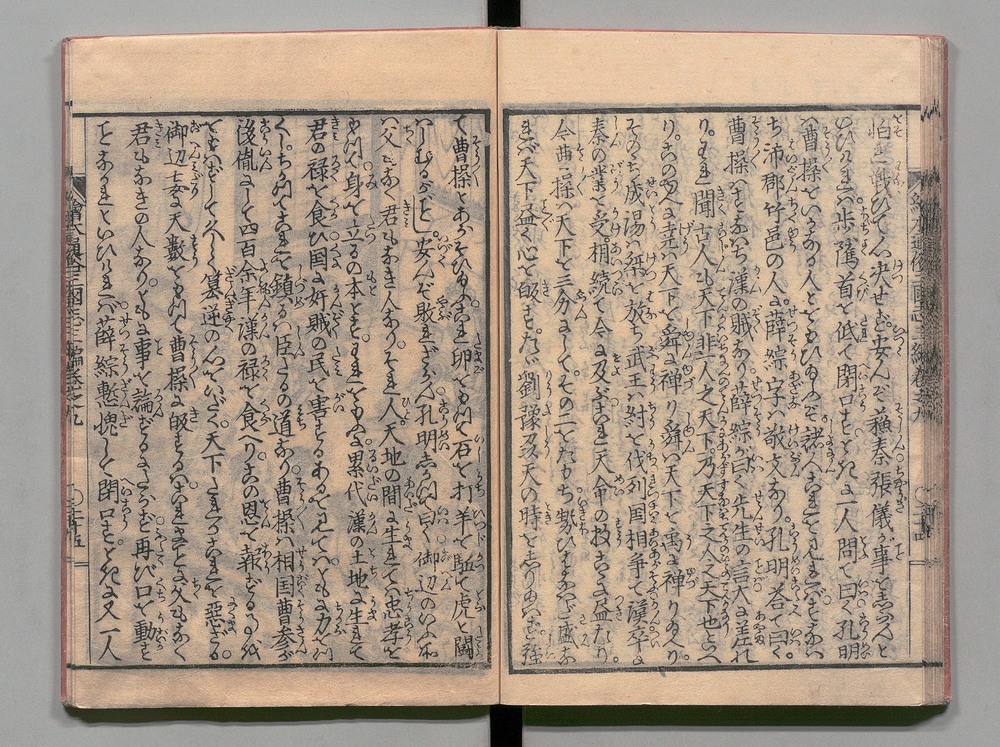 怕き戦ひてハ決せず。安んぞ蘓秦張儀が事を志らんと
いひけれバ歩隲首を低て閉口す。ときに一人問て曰く孔明
ハ曹操をいかなる人とおもひ給ふぞ。諸人これをみれバすなハ
ち沛郡竹邑の人に薛綜字ハ敬文なり。孔明答て曰く
曹操ハすなハち漢の賊なり。薛綜が曰く先生の言大に差れ
り。われ聞古人も天下非一人之天下。乃天下之人之天下也といへ
り。このゆへに堯ハ天下を舜に禅り舜ハ天下を禹に禅り
そのち成湯ハ桀を放ち武王ハ紂を伐列国相争て漢卒に
秦の業を受。相続て今に及ぶ天命の数すでに益たり
今曹操ハ天下を三分してその二をたもち勢ひますます盛な
れバ天下益く心を皈す。たゞ劉豫刕天の時をしり給ハず強
て曹操とあらそひ給ふハこれ卵をもつて石を打羊を駈て虎と闘
ハしむるがごとし。安んぞ敗れざらん孔明志かつて曰く御辺のいふ所
ハ父もなく君もなき人なり。それ人天地の間に生れてハ忠孝を
もつて身を立るの本とす。われもとより累代漢の土地に生れて
君の禄を食ひ国に奸賊の民を害するあるをみてハともに力を
くハちかつてこれを鎮るハ臣たるの道なり曹操ハ相国曹参が
後胤にして四百余年漢の禄を食へりその恩を報ぜる
をおもハずしてかへつて簒逆の心をいだく天下これを悪ざる
御辺妄に天數をもつて曹操に皈するといふことハ父もなく
君もなきの人なり。ともに事を論ずるにたらず再び口を動す
ことなかれといひけれバ薛綜慙愧して閉口す。ときに又一人
繪本通俗三國志二編巻之九 〇二十五